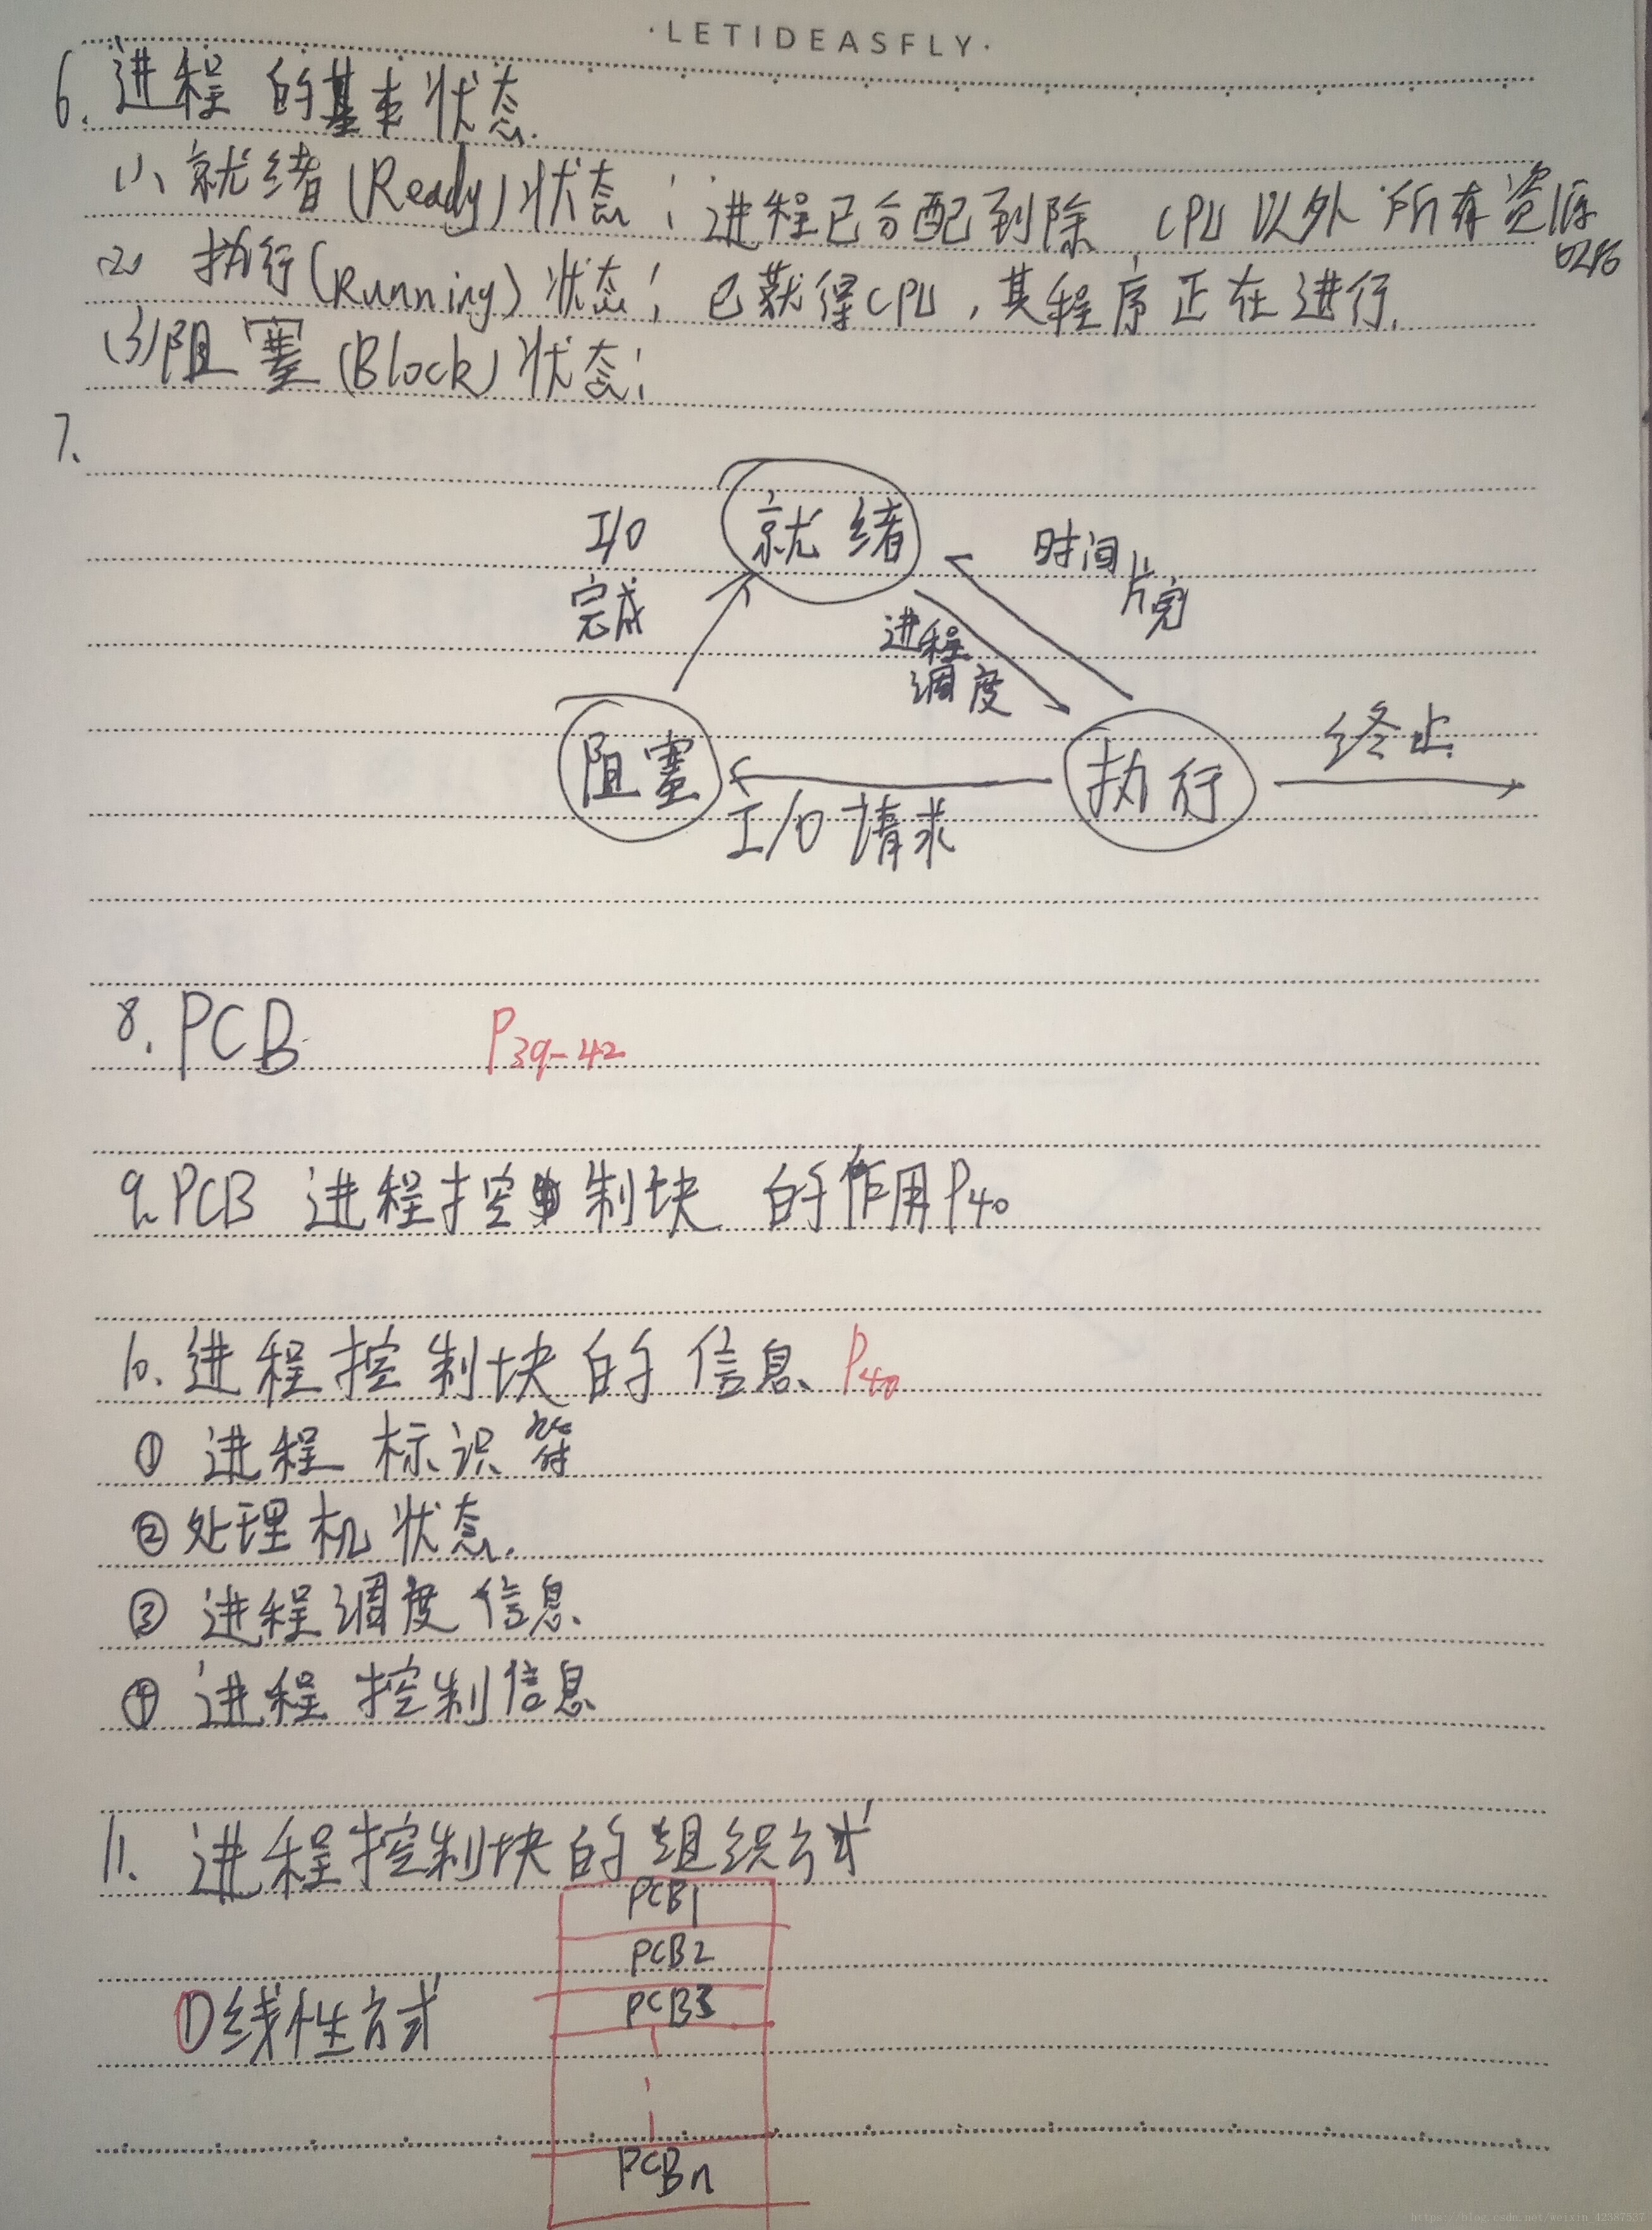 ·LETIDEASFLY·
6.进程的基本状态.
(1)、就绪(Ready)状态:进程已分配到除CPU以外所有资源
(2) 执行(Running)状态:已获得CPU,其程序正在进行.
(3)阻塞(Block)状态:
7.
就绪
I/O
完成
时间
片完
进程
调度
阻塞
执行
终止
I/O请求
8.PCB P39-42
9.PCB 进程控制块 的作用P40
10.进程控制块的信息 P40
① 进程标识符
②处理机状态.
③ 进程调度信息
④ 进程控制信息
11. 进程控制块的组织方式
PCB1
PCB2
PCB3
①线性方式
PCBn